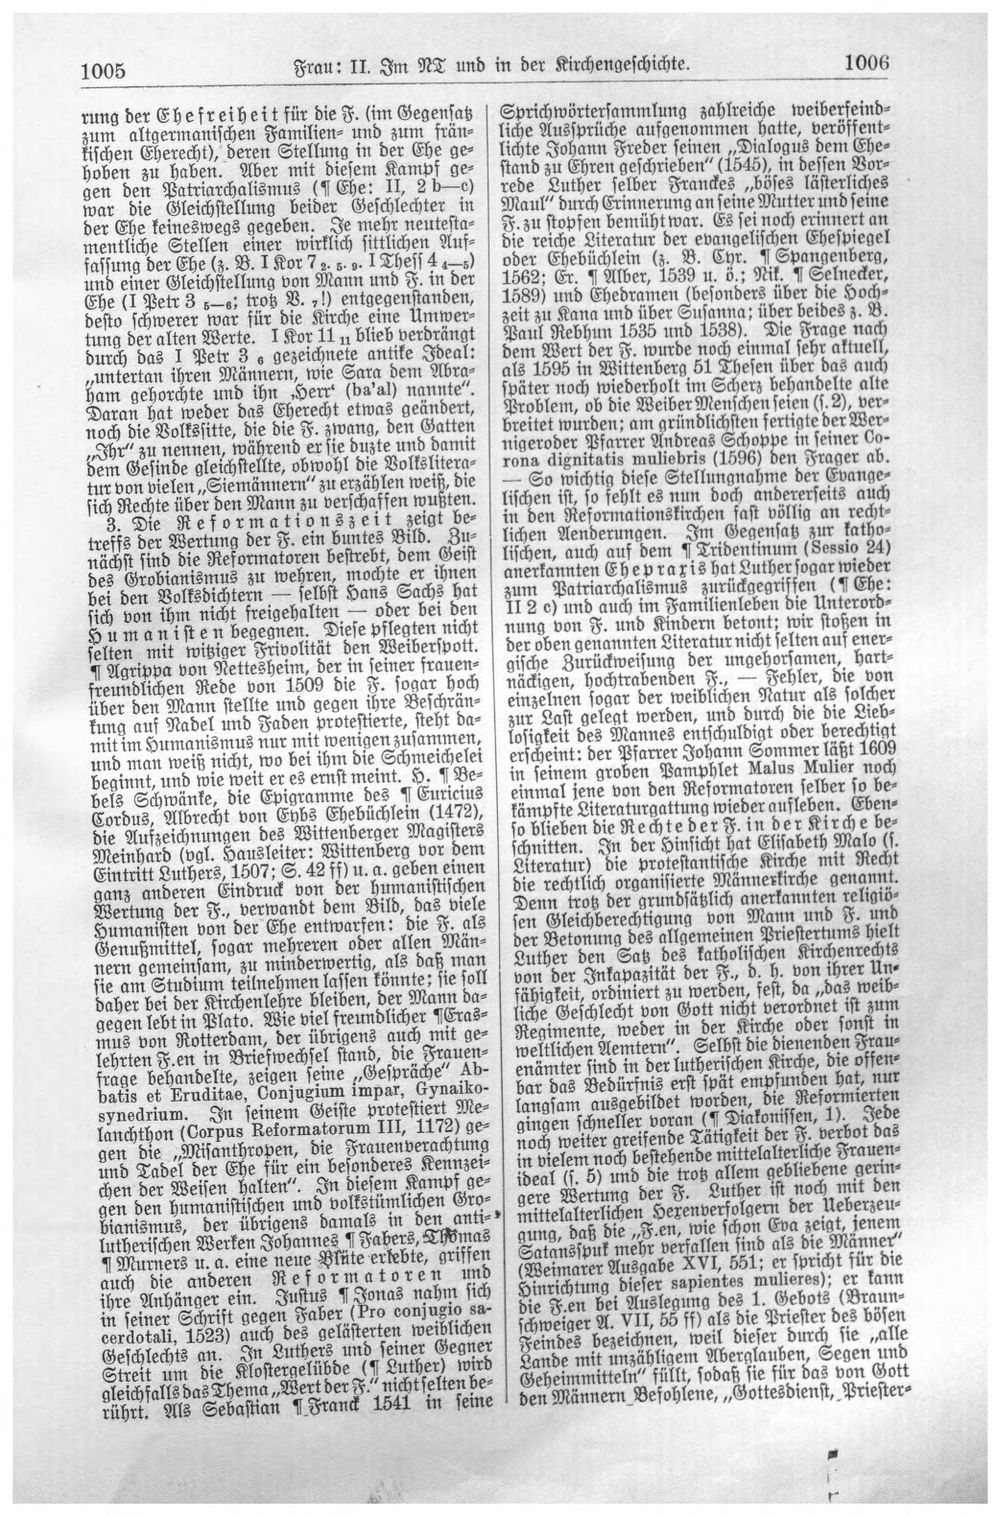 1005
Frau: II. Im NT und in der Kirchengeschichte.
1006
rung der Ehefreiheit für die F. (im Gegensatz
zum altgermanischen Familien- und zum frän-
kischen Eherecht), deren Stellung in der Ehe ge-
hoben zu haben. Aber mit diesem Kampf ge-
gen den Patriarchalismus (¶ Ehe: II, 2 b—c)
war die Gleichstellung beider Geschlechter in
der Ehe keineswegs gegeben. Je mehr neutesta-
mentliche Stellen einer wirklich sittlichen Auf-
fassung der Ehe (z. B. I Kor 7 2. 5. 9. I Thess 4 4—5)
und einer Gleichstellung von Mann und F. in der
Ehe (I Petr 3 5—6; trotz V. 7!) entgegenstanden,
desto schwerer war für die Kirche eine Umwer-
tung der alten Werte. I Kor 11 11 blieb verdrängt
durch das I Petr 3 6 gezeichnete antike Ideal:
„untertan ihren Männern, wie Sara dem Abra-
ham gehorchte und ihn ‚Herr‘ (ba'al) nannte“.
Daran hat weder das Eherecht etwas geändert,
noch die Volkssitte, die die F. zwang, den Gatten
„Ihr“ zu nennen, während er sie duzte und damit
dem Gesinde gleichstellte, obwohl die Volkslitera-
tur von vielen „Siemännern“ zu erzählen weiß, die
sich Rechte über den Mann zu verschaffen wußten.
3. Die Reformationszeit zeigt be-
treffs der Wertung der F. ein buntes Bild. Zu-
nächst sind die Reformatoren bestrebt, dem Geist
des Grobianismus zu wehren, mochte er ihnen
bei den Volksdichtern — selbst Hans Sachs hat
sich von ihm nicht freigehalten — oder bei den
Humanisten begegnen. Diese pflegten nicht
selten mit witziger Frivolität den Weiberspott.
¶ Agrippa von Nettesheim, der in seiner frauen-
freundlichen Rede von 1509 die F. sogar hoch
über den Mann stellte und gegen ihre Beschrän-
kung auf Nadel und Faden protestierte, steht da-
mit im Humanismus nur mit wenigen zusammen,
und man weiß nicht, wo bei ihm die Schmeichelei
beginnt, und wie weit er es ernst meint. H. ¶ Be-
bels Schwänke, die Epigramme des ¶ Euricius
Cordus, Albrecht von Eybs Ehebüchlein (1472),
die Aufzeichnungen des Wittenberger Magisters
Meinhard (vgl. Hausleiter: Wittenberg vor dem
Eintritt Luthers, 1507; S. 42 ff) u. a. geben einen
ganz anderen Eindruck von der humanistischen
Wertung der F., verwandt dem Bild, das viele
Humanisten von der Ehe entwarfen: die F. als
Genußmittel, sogar mehreren oder allen Män-
nern gemeinsam, zu minderwertig, als daß man
sie am Studium teilnehmen lassen könnte; sie soll
daher bei der Kirchenlehre bleiben, der Mann da-
gegen lebt in Plato. Wie viel freundlicher ¶ Eras-
mus von Rotterdam, der übrigens auch mit ge-
lehrten F.en in Briefwechsel stand, die Frauen-
frage behandelte, zeigen seine „Gespräche“ Ab-
batis et Eruditae, Conjugium impar, Gynaiko-
synedrium. In seinem Geiste protestiert Me-
lanchthon (Corpus Reformatorum III, 1172) ge-
gen die „Misanthropen, die Frauenverachtung
und Tadel der Ehe für ein besonderes Kennzei-
chen der Weisen halten“. In diesem Kampf ge-
gen den humanistischen und volkstümlichen Gro-
bianismus, der übrigens damals in den anti-
lutherischen Werken Johannes ¶ Fabers, Thomas
¶ Murners u. a. eine neue Blüte erlebte, griffen
auch die anderen Reformatoren und
ihre Anhänger ein. Justus ¶ Jonas nahm sich
in seiner Schrift gegen Faber (Pro conjugio sa-
cerdotali, 1523) auch des gelästerten weiblichen
Geschlechts an. In Luthers und seiner Gegner
Streit um die Klostergelübde (¶ Luther) wird
gleichfalls das Thema „Wert der F.“ nicht selten be-
rührt. Als Sebastian ¶ Franck 1541 in seine
Sprichwörtersammlung zahlreiche weiberfeind-
liche Aussprüche aufgenommen hatte, veröffent-
lichte Johann Freder seinen „Dialogus dem Ehe-
stand zu Ehren geschrieben“ (1545), in dessen Vor-
rede Luther selber Franckes „böses lästerliches
Maul“ durch Erinnerung an seine Mutter und seine
F. zu stopfen bemüht war. Es sei noch erinnert an
die reiche Literatur der evangelischen Ehespiegel
oder Ehebüchlein (z. B. Cyr. ¶ Spangenberg,
1562; Er. ¶ Alber, 1539 u. ö.; Nik. ¶ Selnecker,
1589) und Ehedramen (besonders über die Hoch-
zeit zu Kana und über Susanna; über beides z. B.
Paul Rebhun 1535 und 1538). Die Frage nach
dem Wert der F. wurde noch einmal sehr aktuell,
als 1595 in Wittenberg 51 Thesen über das auch
später noch wiederholt im Scherz behandelte alte
Problem, ob die Weiber Menschen seien (s. 2), ver-
breitet wurden; am gründlichsten fertigte der Wer-
nigeroder Pfarrer Andreas Schoppe in seiner Co-
rona dignitatis muliebris (1596) den Frager ab.
— So wichtig diese Stellungnahme der Evange-
lischen ist, so fehlt es nun doch andererseits auch
in den Reformationskirchen fast völlig an recht-
lichen Aenderungen. Im Gegensatz zur katho-
lischen, auch auf dem ¶ Tridentinum (Sessio 24)
anerkannten Ehepraxis hat Luther sogar wieder
zum Patriarchalismus zurückgegriffen (¶ Ehe:
II 2 c) und auch im Familienleben die Unterord-
nung von F. und Kindern betont; wir stoßen in
der oben genannten Literatur nicht selten auf ener-
gische Zurückweisung der ungehorsamen, hart-
näckigen, hochtrabenden F., — Fehler, die von
einzelnen sogar der weiblichen Natur als solcher
zur Last gelegt werden, und durch die die Lieb-
losigkeit des Mannes entschuldigt oder berechtigt
erscheint: der Pfarrer Johann Sommer läßt 1609
in seinem groben Pamphlet Malus Mulier noch
einmal jene von den Reformatoren selber so be-
kämpfte Literaturgattung wieder aufleben. Eben-
so blieben die Rechte der F. in der Kirche be-
schnitten. In der Hinsicht hat Elisabeth Malo (s.
Literatur) die protestantische Kirche mit Recht
die rechtlich organisierte Männerkirche genannt.
Denn trotz der grundsätzlich anerkannten religiö-
sen Gleichberechtigung von Mann und F. und
der Betonung des allgemeinen Priestertums hielt
Luther den Satz des katholischen Kirchenrechts
von der Inkapazität der F., d. h. von ihrer Un-
fähigkeit, ordiniert zu werden, fest, da „das weib-
liche Geschlecht von Gott nicht verordnet ist zum
Regimente, weder in der Kirche oder sonst in
weltlichen Aemtern“. Selbst die dienenden Frau-
enämter sind in der lutherischen Kirche, die offen-
bar das Bedürfnis erst spät empfunden hat, nur
langsam ausgebildet worden, die Reformierten
gingen schneller voran (¶ Diakonissen, 1). Jede
noch weiter greifende Tätigkeit der F. verbot das
in vielem noch bestehende mittelalterliche Frauen-
ideal (s. 5) und die trotz allem gebliebene gerin-
gere Wertung der F. Luther ist noch mit den
mittelalterlichen Hexenverfolgern der Ueberzeu-
gung, daß die „F.en, wie schon Eva zeigt, jenem
Satansspuk mehr verfallen sind als die Männer“
(Weimarer Ausgabe XVI, 551; er spricht für die
Hinrichtung dieser sapientes mulieres); er kann
die F.en bei Auslegung des 1. Gebots (Braun-
schweiger A. VII, 55 ff) als die Priester des bösen
Feindes bezeichnen, weil dieser durch sie „alle
Lande mit unzähligem Aberglauben, Segen und
Geheimmitteln“ füllt, sodaß sie für das von Gott
den Männern Befohlene, „Gottesdienst, Priester-